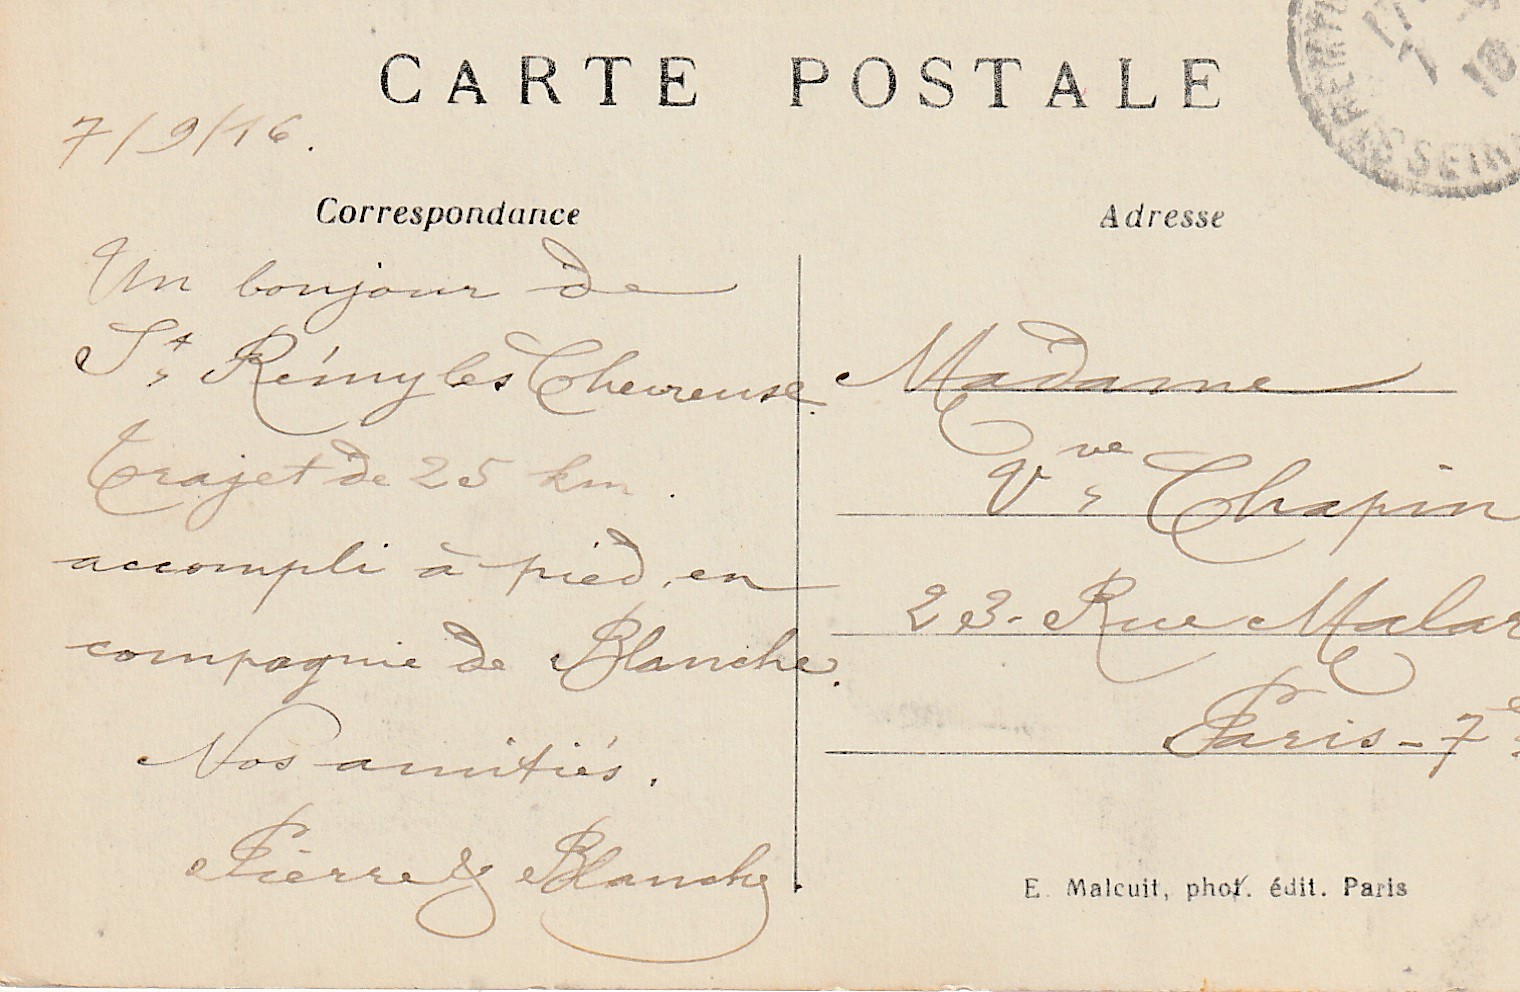 CARTE POSTALE
7/9/16.
Correspondance
Un bonjour de
St Rémy les Chevreuse.
Trajet de 25 km.
accompli à pied, en
compagnie de Blanche.
Nos amitiés.
Pierre & Blanche
Adresse
Madame
Vve Chapin
23 - Rue Malar
Paris - 7e
E. Malcuit, phot. édit. Paris
7